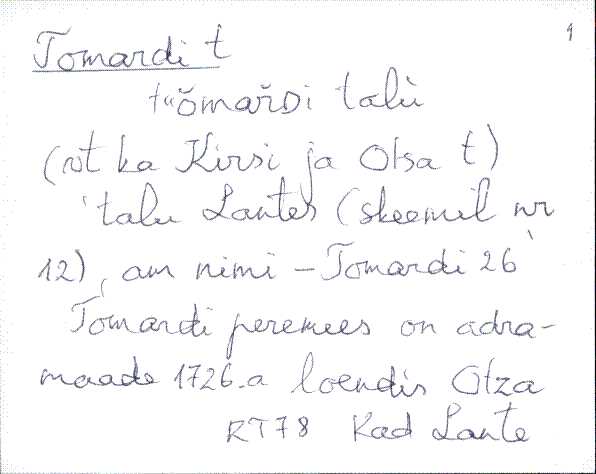 9
Tomardi t
tuŏmařDi talù
(vt ka Kirsi ja Otsa t)
'talu Lantes (skeemil nr
12), am nimi – Tomardi 26
Tomardi peremees on adra-
maade 1726.a loendis Otza
RT78 Kad Lante